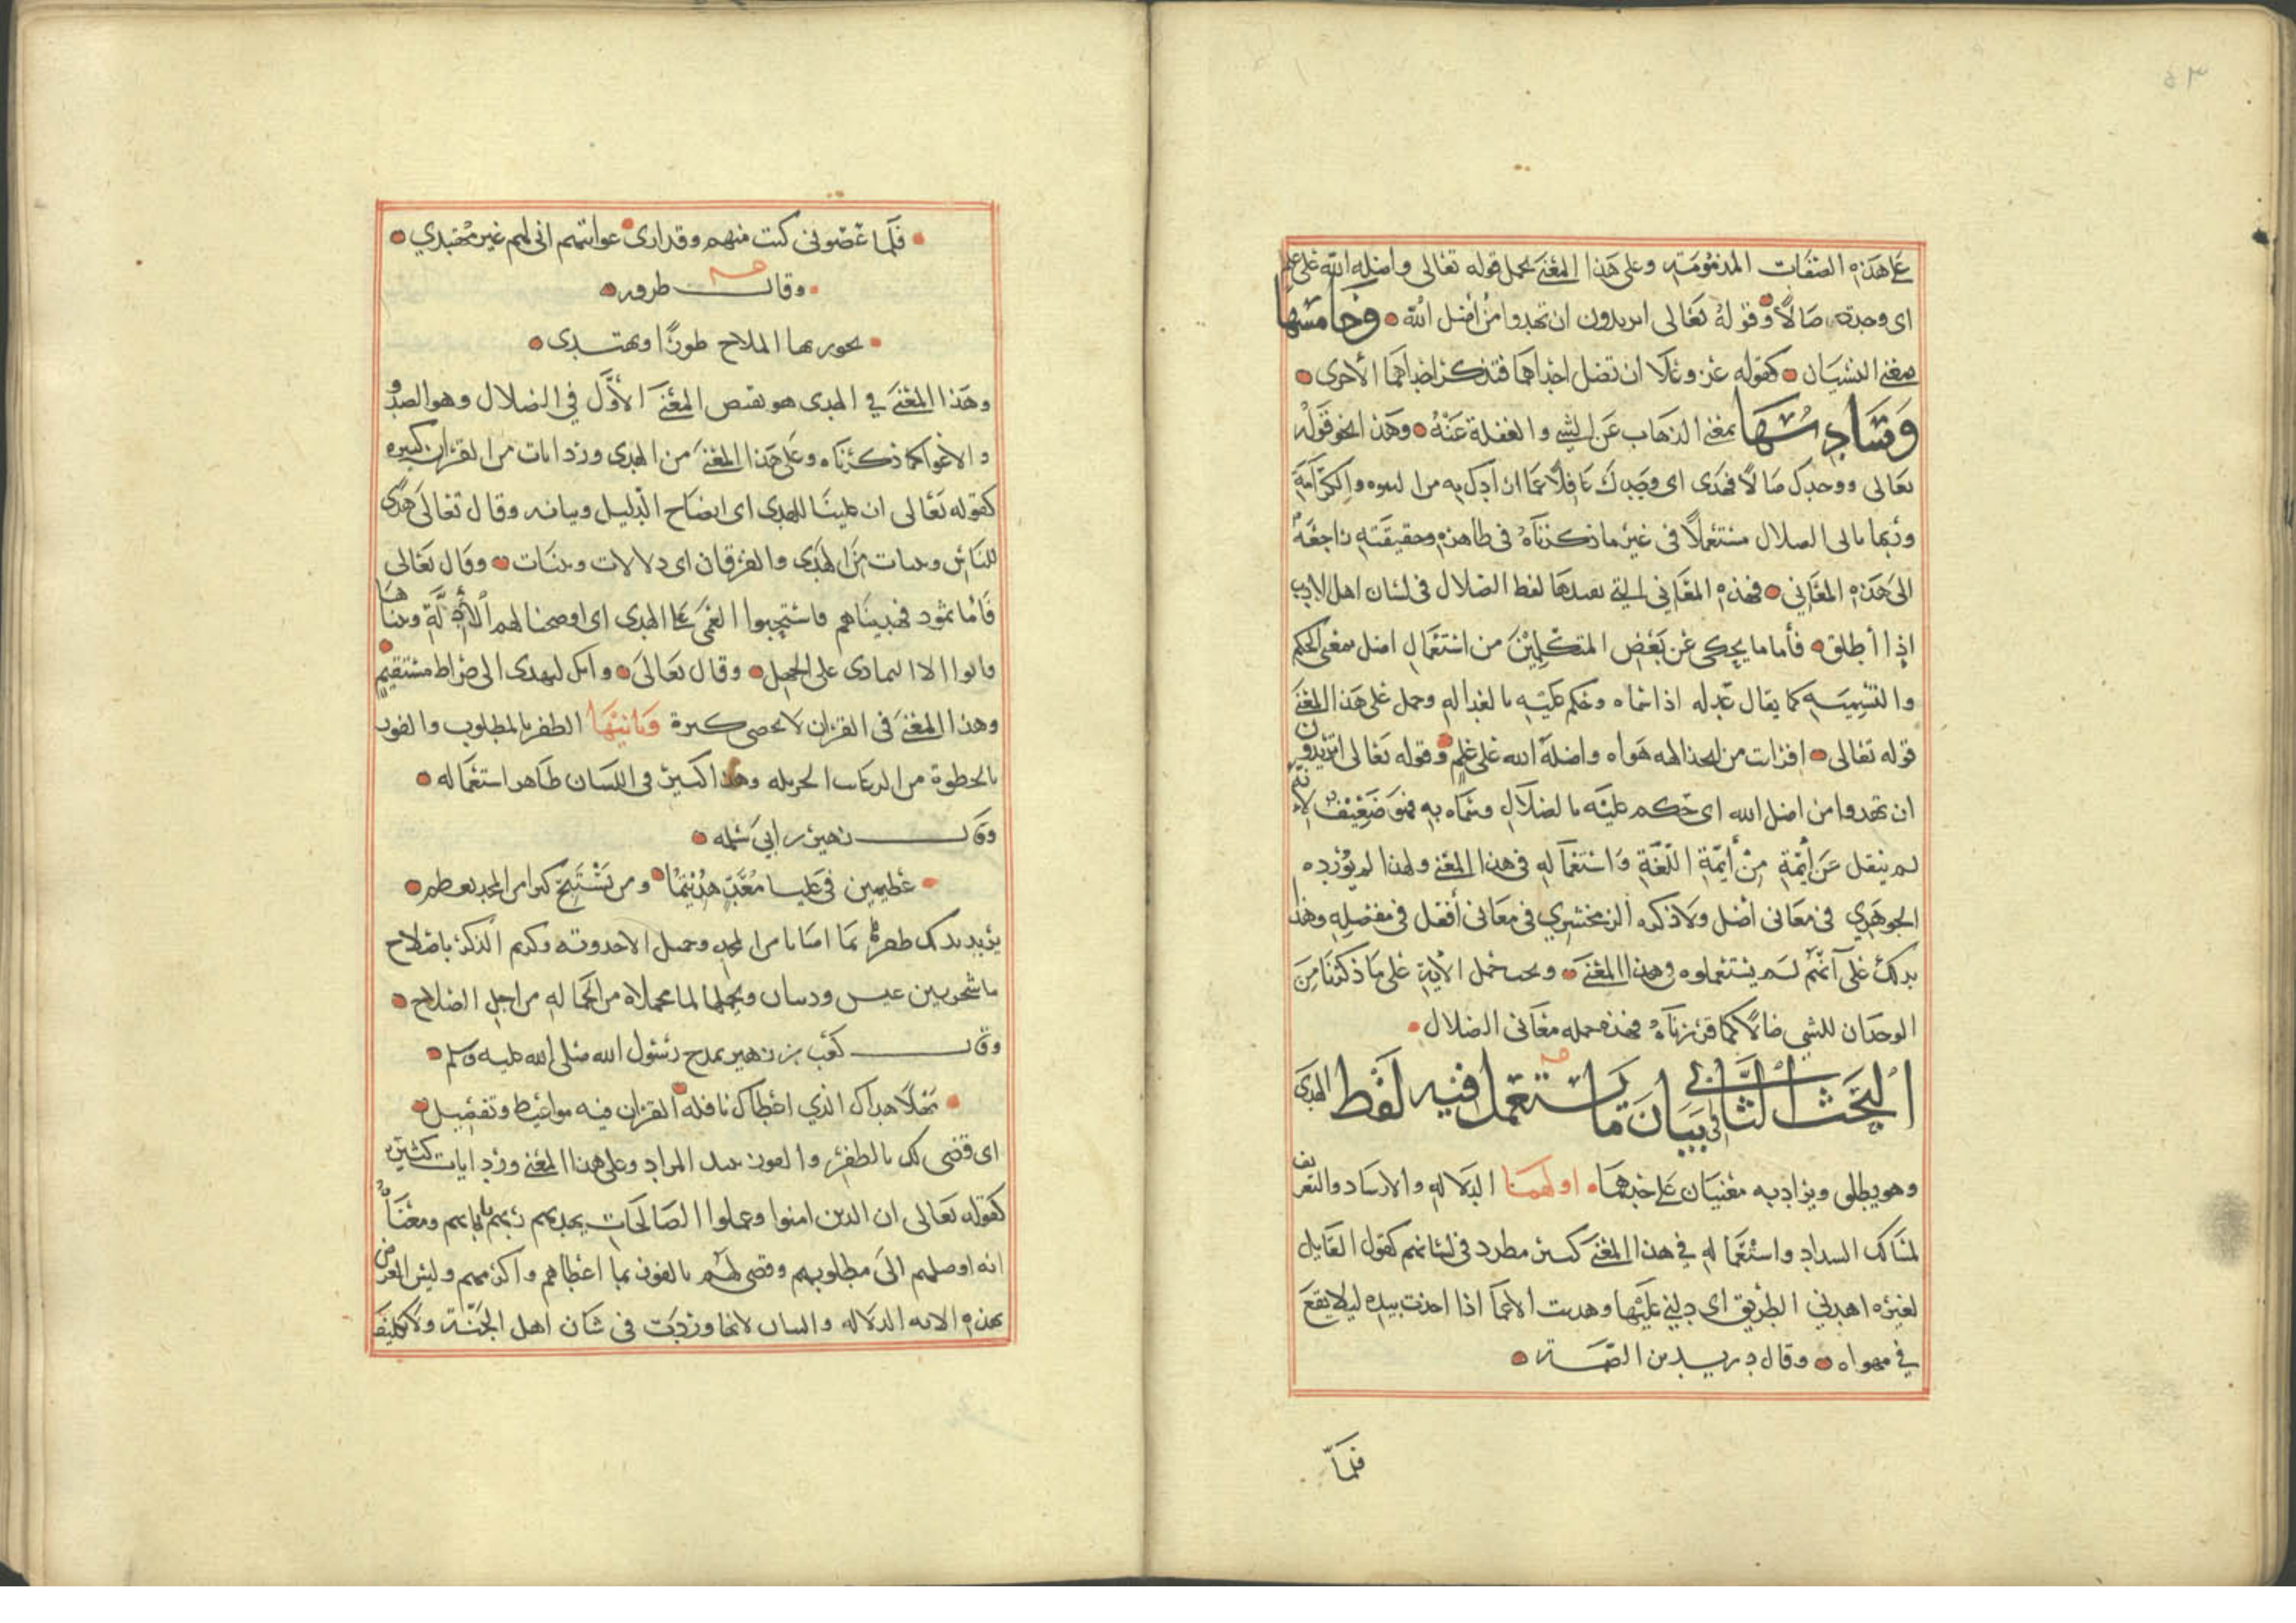 ٥٣
على هذه الصفات المذمومة وعلى هذا المعنى يحمل قوله تعالى واضله الله على علم
اى وجده ضالاً وقوله تعالى اتريدون ان تهدوا من أضل الله وخامسها
بمعنى النسيان كقوله عز وعلا ان تضل احداهما فتذكر احداهما الأخرى
وسادسها بمعنى الذهاب عن الشى والغفلة عنه وهذا نحو قوله
تعالى ووجدك ضالاً فهدى اى وجدك غافلاً عما ارادك به من النبوه والكرامة
وربما ياتى الضلال مستعملاً فى غير ما ذكرناه فى ظاهره وحقيقته راجعة
الى هذه المعاني فهذه المعاني التي يفيدها لفظ الضلال فى لسان اهل الادب
اذا أطلق فأما ما يحكى عن بعض المتكلمين من استعمال اضل بمعنى الحكم
والتسمية كما يقال عدله اذا سماه وحكم عليه بالعداله وحمل على هذا المعنى
قوله تعالى افرات من اتخذ الهه هواه واضله الله على علم وقوله تعالى اتريدون
ان تهدوا من اضل الله اى حكم عليه بالضلال وسماه به فهو ضعيف لانه
لم ينقل عن أيمة من أيمة اللغة واستعماله فى هذا المعنى ولهذا لم يورده
الجوهري فى معانى اضل ولا ذكره الزمخشري فى معانى أفعل فى مفصله وهذا
يدلك على آنهم لم يستعملوه فى هذا المعنى ويجب حمل الآية على ما ذكرنا من
الوجدان للشي ضالاً كما قررناه فهذه جمله معانى الضلال
البحث الثاني فى بيان ما يستعمل فيه لفظ الهدى
وهو يطلق ويراد به معنيان على حدهما اولهما الدلاله والارشاد والتعريف
لمسالك السداد واستعماله في هذا المعنى كثير مطرد فى لسانهم كقول القايل
لغيره اهدني الطريق اى دلني عليها وهديت الاعما اذا اخذت بيده ليلا يقع
في مهواه وقال دريد بن الصمة
فلما
فلما عصونى كنت منهم وقد ارى عواتهم انى لهم غير مهتدي
وقال طرفه
يجور بها الملاح طورًا ويهتدى
وهذا المعنى في الهدى هو نقيض المعنى الأول في الضلال وهو الصد و
الاغوا كما ذكرناه وعلى هذا المعنى من الهدى ورد ايات من القران كثيره
كقوله تعالى ان علينا للهدى اى ايضاح الدليل وبيانه وقال تعالى هدى
للناس وبينات من الهدى والفرقان اى دلالات وبينات وقال تعالى
فأما ثمود فهديناهم فاستحبوا العمى على الهدى اى اوضحنا لهم الأدلة وبيناها
فابوا الا التمادى على الجهل وقال تعالى وانك لتهدى الى صراط مستقيم
وهذا المعنى فى القران لا تحصى كثرة وثانيها الظفر بالمطلوب والفوز
بالحظوة من الرغايب الجزيله وهذا كثير فى اللسان ظاهر استعماله
وقال زهير بن ابي سلمه
عظيمين فى عليا معد هديتما ومن يستبح كنزا من المجد يعظم
يريد بذلك ظفرتما بما اصابا من المجد وجميل الاحدوثه وكريم الذكر باصلاح
ما شجر بين عبس وذبيان وتحملهما لما تحملاه من الحماله من اجل الصلاح
وقال كعب بن زهير يمدح رسول الله صلى الله عليه وسلم
مهلاً هداك الذي اعطاك نافله القران فيه مواعيظ وتفصيل
اى قضى لك بالظفر والفوز بنيل المراد وعلى هذا المعنى ورد ايات كثيره
كقوله تعالى ان الذين امنوا وعملوا الصالحات يهديهم ربهم بايمانهم ومعناه
انه اوصلهم الى مطلوبهم وقضى لهم بالفوز بما اعطاهم واكرمهم وليس الغرض
بهذه الايه الدلاله والبيان لانها وردت فى شان اهل الجنة ولا تكليف